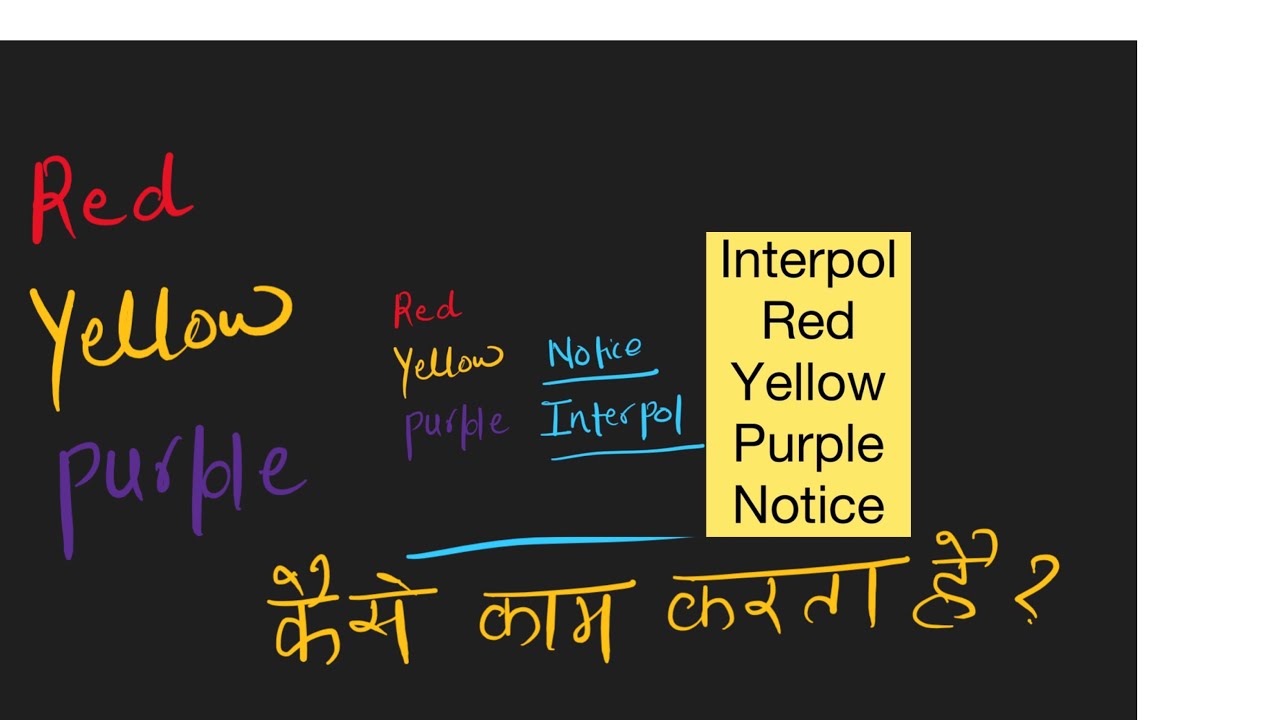 Red
Yellow
Purple
Red
Yellow Notice
Purple Interpol
Interpol
Red
Yellow
Purple
Notice
कैसे काम करता है?